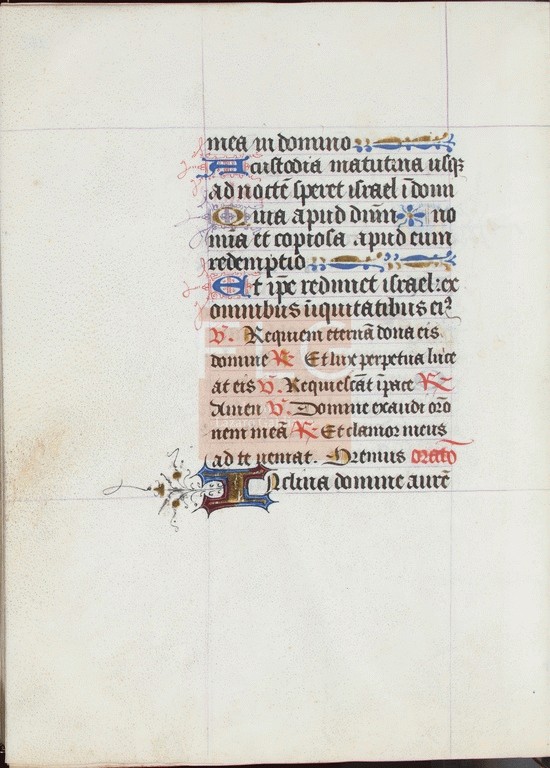 mea in domino
A custodia matutina usqꝫ
ad noctē speret israel ī domi
Quia apud dūm no
mia et copiosa apud eum
redemptio
Et ip̄e redimet israel: ex
omnibus iniquitatibus ei⁹
V. Requiem eternā dona eis
domine R Et lux perpetua luce
at eis V. Requiescāt ī pace R
Amen V. Domine exaudi oro
nem meā R Et clamor meus
ad te ueniat. Oremus oratō
Inclina domine aurē